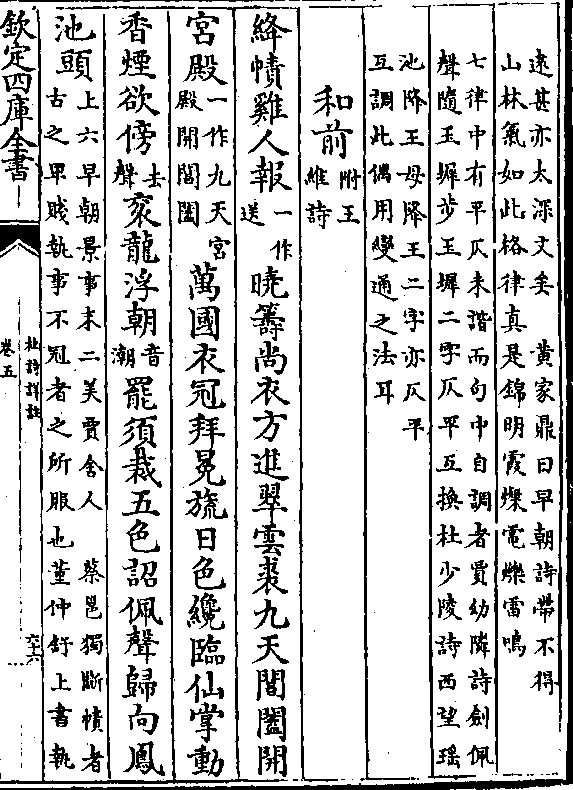 遠甚亦太深文矣　黃家鼎曰早朝詩帶不得
山林氣如此格律真是錦明霞燦電爍雷鳴
七律中有平仄未諧而句中自調者賈幼隣詩劍佩
聲隨玉墀步玉墀二字仄平互換杜少陵詩西望瑶
池降王母降王二字亦仄平
互調此偶用變通之法耳
和前附王維詩
絳幘雞人報一作送曉籌尚衣方進翠雲裘九天閶闔開
宮殿一作九天宮殿開閶闔萬國衣冠拜冕旒日色纔臨仙掌動
香煙欲傍去聲衮龍浮朝音潮罷須裁五色詔佩聲歸向鳳
池頭上六早朝景事末二美賈舍人　蔡邕獨斷幘者
古之卑賤執事不冠者之所服也董仲舒上書執
欽定四庫全書
杜詩詳註
卷五